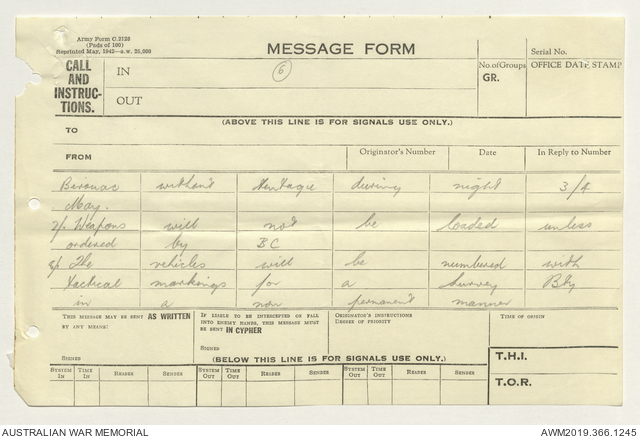 Army Form C.2128
(Pads of 100)
Reprinted May, 1942—a.w. 25,000
MESSAGE FORM
Serial No.
CALL
AND
INSTRUC-
TIONS.
IN
6
No. of Groups
GR.
OFFICE DATE STAMP
OUT
(ABOVE THIS LINE IS FOR SIGNALS USE ONLY.)
TO
FROM
Originator's Number
Date
In Reply to Number
Bivouac without during night 3/4
May.
Weapons will not be loaded unless
ordered by BC
The vehicles will be numbered with
tactical markings for a Survey Bty
in a non permanent manner
THIS MESSAGE MAY BE SENT AS WRITTEN
BY ANY MEANS.
IF LIABLE TO BE INTERCEPTED OR FALL
INTO ENEMY HANDS, THIS MESSAGE MUST
BE SENT IN CIPHER
ORIGINATOR'S INSTRUCTIONS
DEGREE OF PRIORITY
TIME OF ORIGIN
SIGNED
SIGNED
(BELOW THIS LINE IS FOR SIGNALS USE ONLY.)
T.H.I.
SYSTEM IN TIME IN READER SENDER SYSTEM OUT TIME OUT READER SENDER SYSTEM OUT TIME OUT READER SENDER
T.O.R.
AUSTRALIAN WAR MEMORIAL
AWM2019.366.1245